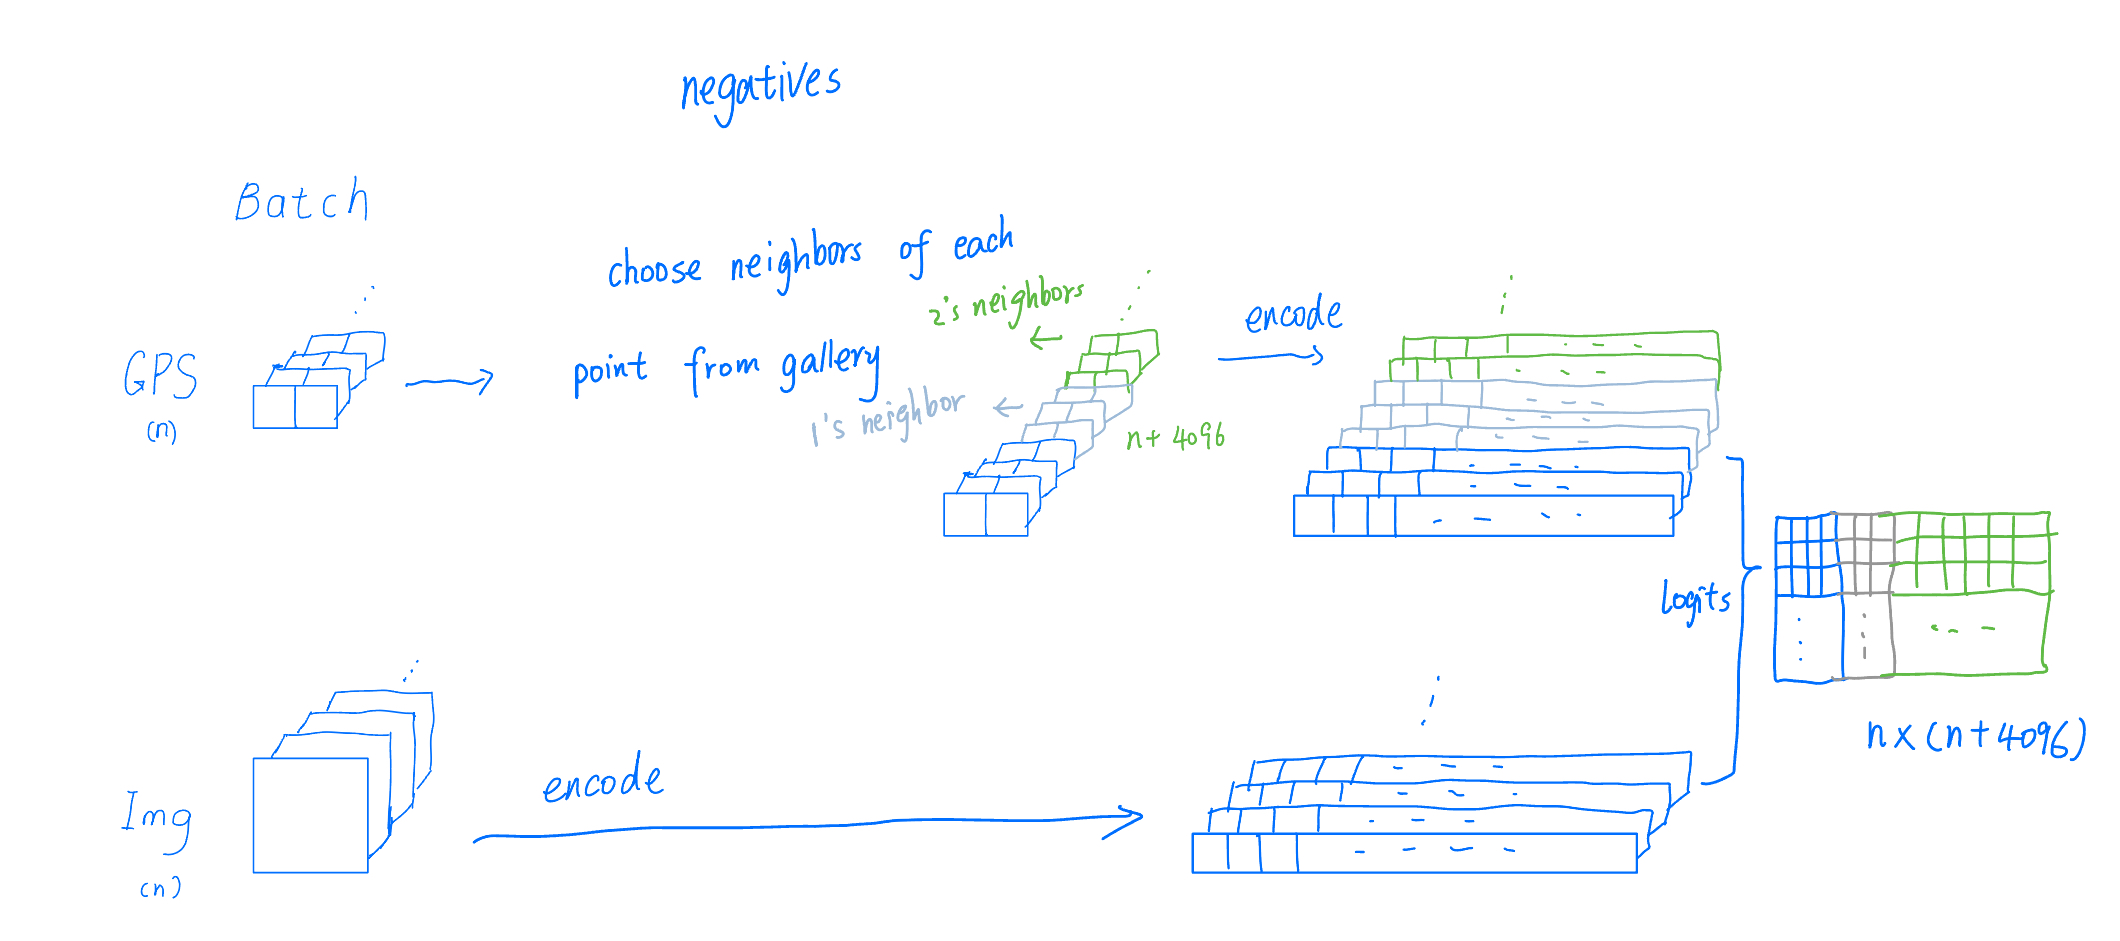 negatives
Batch
choose neighbors of each
point from gallery
2's neighbors
1's neighbor
n+ 4096
encode
GPS
(n)
logits
n x (n+4096)
encode
Img
(n)